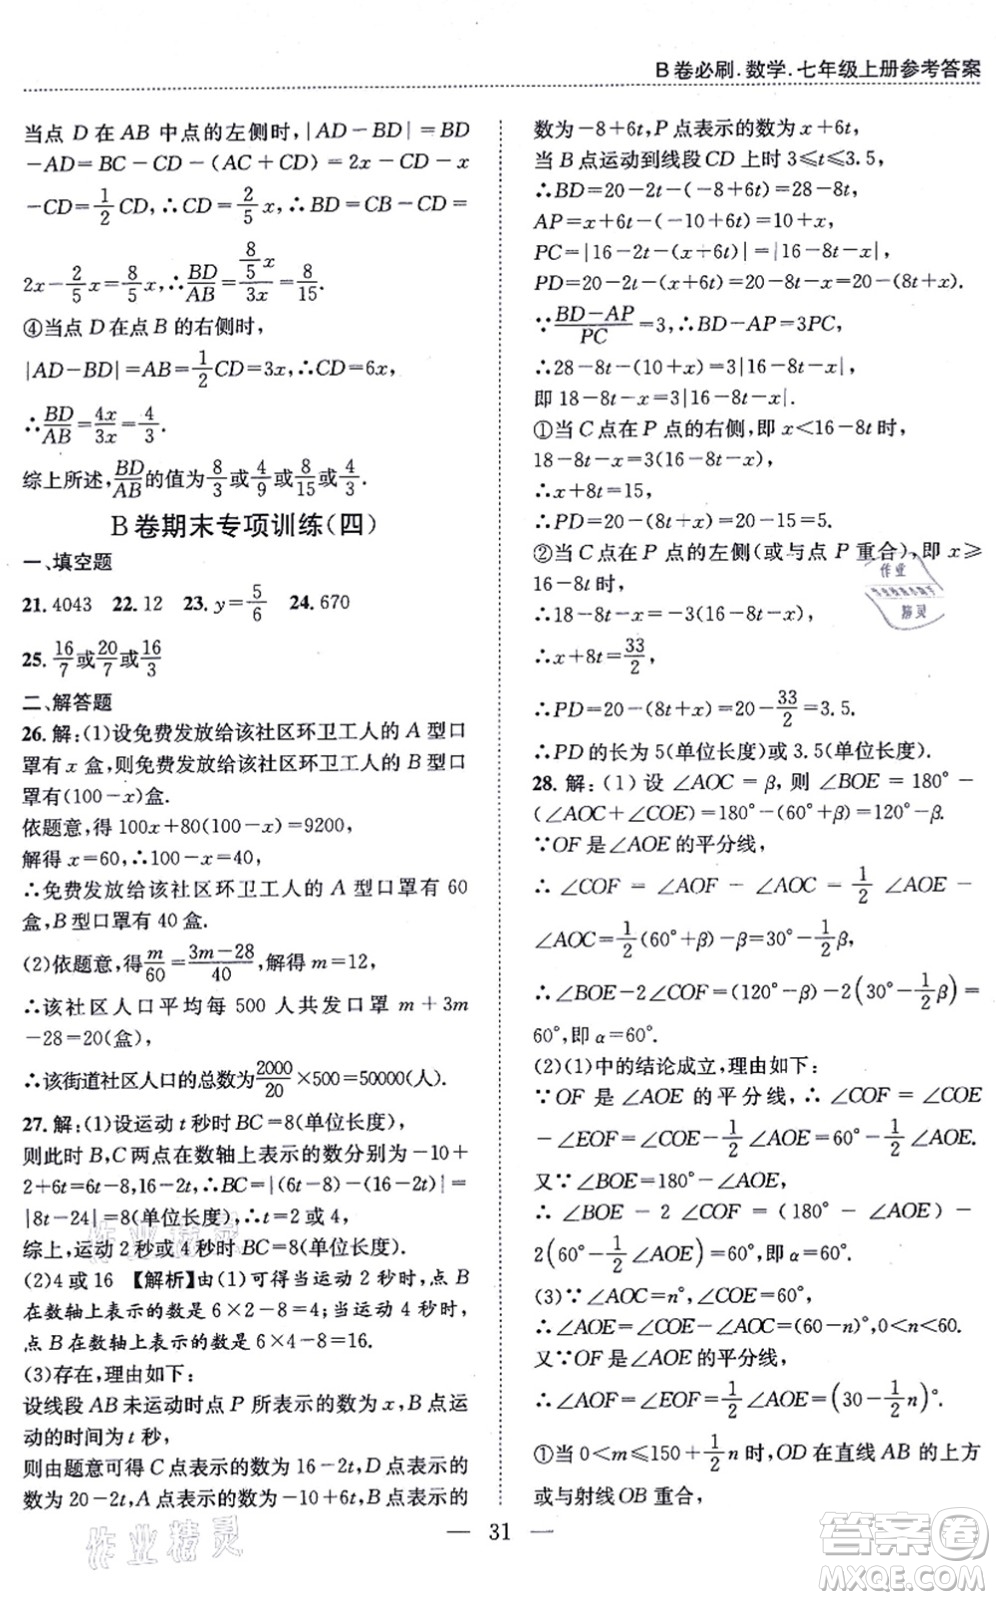 B卷必刷.数学.七年级上册参考答案
当点 D 在 AB 中点的左侧时,|AD-BD|=BD
-AD=BC-CD-(AC+CD)=2x-CD-x
-CD=1/2 CD,∴CD=2/5 x,∴BD=CB-CD=
2x-2/5 x=8/5 x,∴BD/AB=(8/5 x)/3x=8/15.
④当点 D 在点 B 的右侧时,
|AD-BD|=AB=1/2 CD=3x,∴CD=6x,
∴BD/AB=4x/3x=4/3.
综上所述,BD/AB的值为8/3或4/9或8/15或4/3.
B卷期末专项训练(四)
一、填空题
21.4043 22.12 23.y=5/6 24.670
25.16/7或20/7或16/3
二、解答题
26.解:(1)设免费发放给该社区环卫工人的 A 型口
罩有 x 盒,则免费发放给该社区环卫工人的 B 型口
罩有(100-x)盒.
依题意,得 100x+80(100-x)=9200,
解得 x=60,∴100-x=40,
∴免费发放给该社区环卫工人的 A 型口罩有 60
盒,B 型口罩有 40 盒.
(2)依题意,得m/60=(3m-28)/40,解得 m=12,
∴该社区人口平均每 500 人共发口罩 m+3m
-28=20(盒),
∴该街道社区人口的总数为2000/20×500=50000(人).
27.解:(1)设运动 t 秒时 BC=8(单位长度),
则此时 B,C 两点在数轴上表示的数分别为-10+
2+6t=6t-8,16-2t,∴BC=|(6t-8)-(16-2t)|=
|8t-24|=8(单位长度),∴t=2或4,
综上,运动 2 秒或 4 秒时 BC=8(单位长度).
(2)4 或 16 【解析】由(1)可得当运动 2 秒时,点 B
在数轴上表示的数是 6×2-8=4;当运动 4 秒时,
点 B 在数轴上表示的数是 6×4-8=16.
(3)存在,理由如下:
设线段 AB 未运动时点 P 所表示的数为 x,B 点运
动的时间为 t 秒,
则由题意可得 C 点表示的数为 16-2t,D 点表示的
数为 20-2t,A 点表示的数为-10+6t,B 点表示的
数为-8+6t,P 点表示的数为 x+6t,
当 B 点运动到线段 CD 上时 3≤t≤3.5,
∴BD=20-2t-(-8+6t)=28-8t,
AP=x+6t-(-10+6t)=10+x,
PC=|16-2t-(x+6t)|=|16-8t-x|,
PD=20-2t-(x+6t)=20-8t-x=20-(8t+x).
∵(BD-AP)/PC=3,∴BD-AP=3PC,
∴28-8t-(10+x)=3|16-8t-x|,
即 18-8t-x=3|16-8t-x|.
①当 C 点在 P 点的右侧,即 x<16-8t 时,
18-8t-x=3(16-8t-x),
∴x+8t=15,
∴PD=20-(8t+x)=20-15=5.
②当 C 点在 P 点的左侧(或与点 P 重合),即 x≥
16-8t 时,
∴18-8t-x=-3(16-8t-x),
∴x+8t=33/2,
∴PD=20-(8t+x)=20-33/2=3.5.
∴PD 的长为 5(单位长度)或 3.5(单位长度).
28.解:(1)设∠AOC=β,则∠BOE=180°-
(∠AOC+∠COE)=180°-(60°+β)=120°-β.
∵OF 是∠AOE 的平分线,
∴∠COF=∠AOF-∠AOC=1/2∠AOE-
∠AOC=1/2(60°+β)-β=30°-1/2β,
∴∠BOE-2∠COF=(120°-β)-2(30°-1/2β)=
60°,即 α=60°.
(2)(1)中的结论成立,理由如下:
∵OF 是∠AOE 的平分线,∴∠COF=∠COE
-∠EOF=∠COE-1/2∠AOE=60°-1/2∠AOE.
又∵∠BOE=180°-∠AOE,
∴∠BOE-2∠COF=(180°-∠AOE)-
2(60°-1/2∠AOE)=60°,即 α=60°.
(3)∵∠AOC=n°,∠COE=60°,
∴∠AOE=∠COE-∠AOC=(60-n)°,0<n<60.
又∵OF 是∠AOE 的平分线,
∴∠AOF=∠EOF=1/2∠AOE=(30-1/2n)°,
①当 0<m≤150+1/2n 时,OD 在直线 AB 的上方
或与射线 OB 重合,
— 31 —
作业精灵
作业精灵
答案圈
MXQE.COM